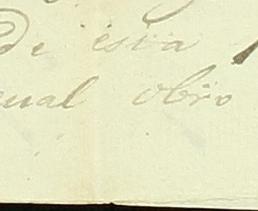 de esta
cual obro